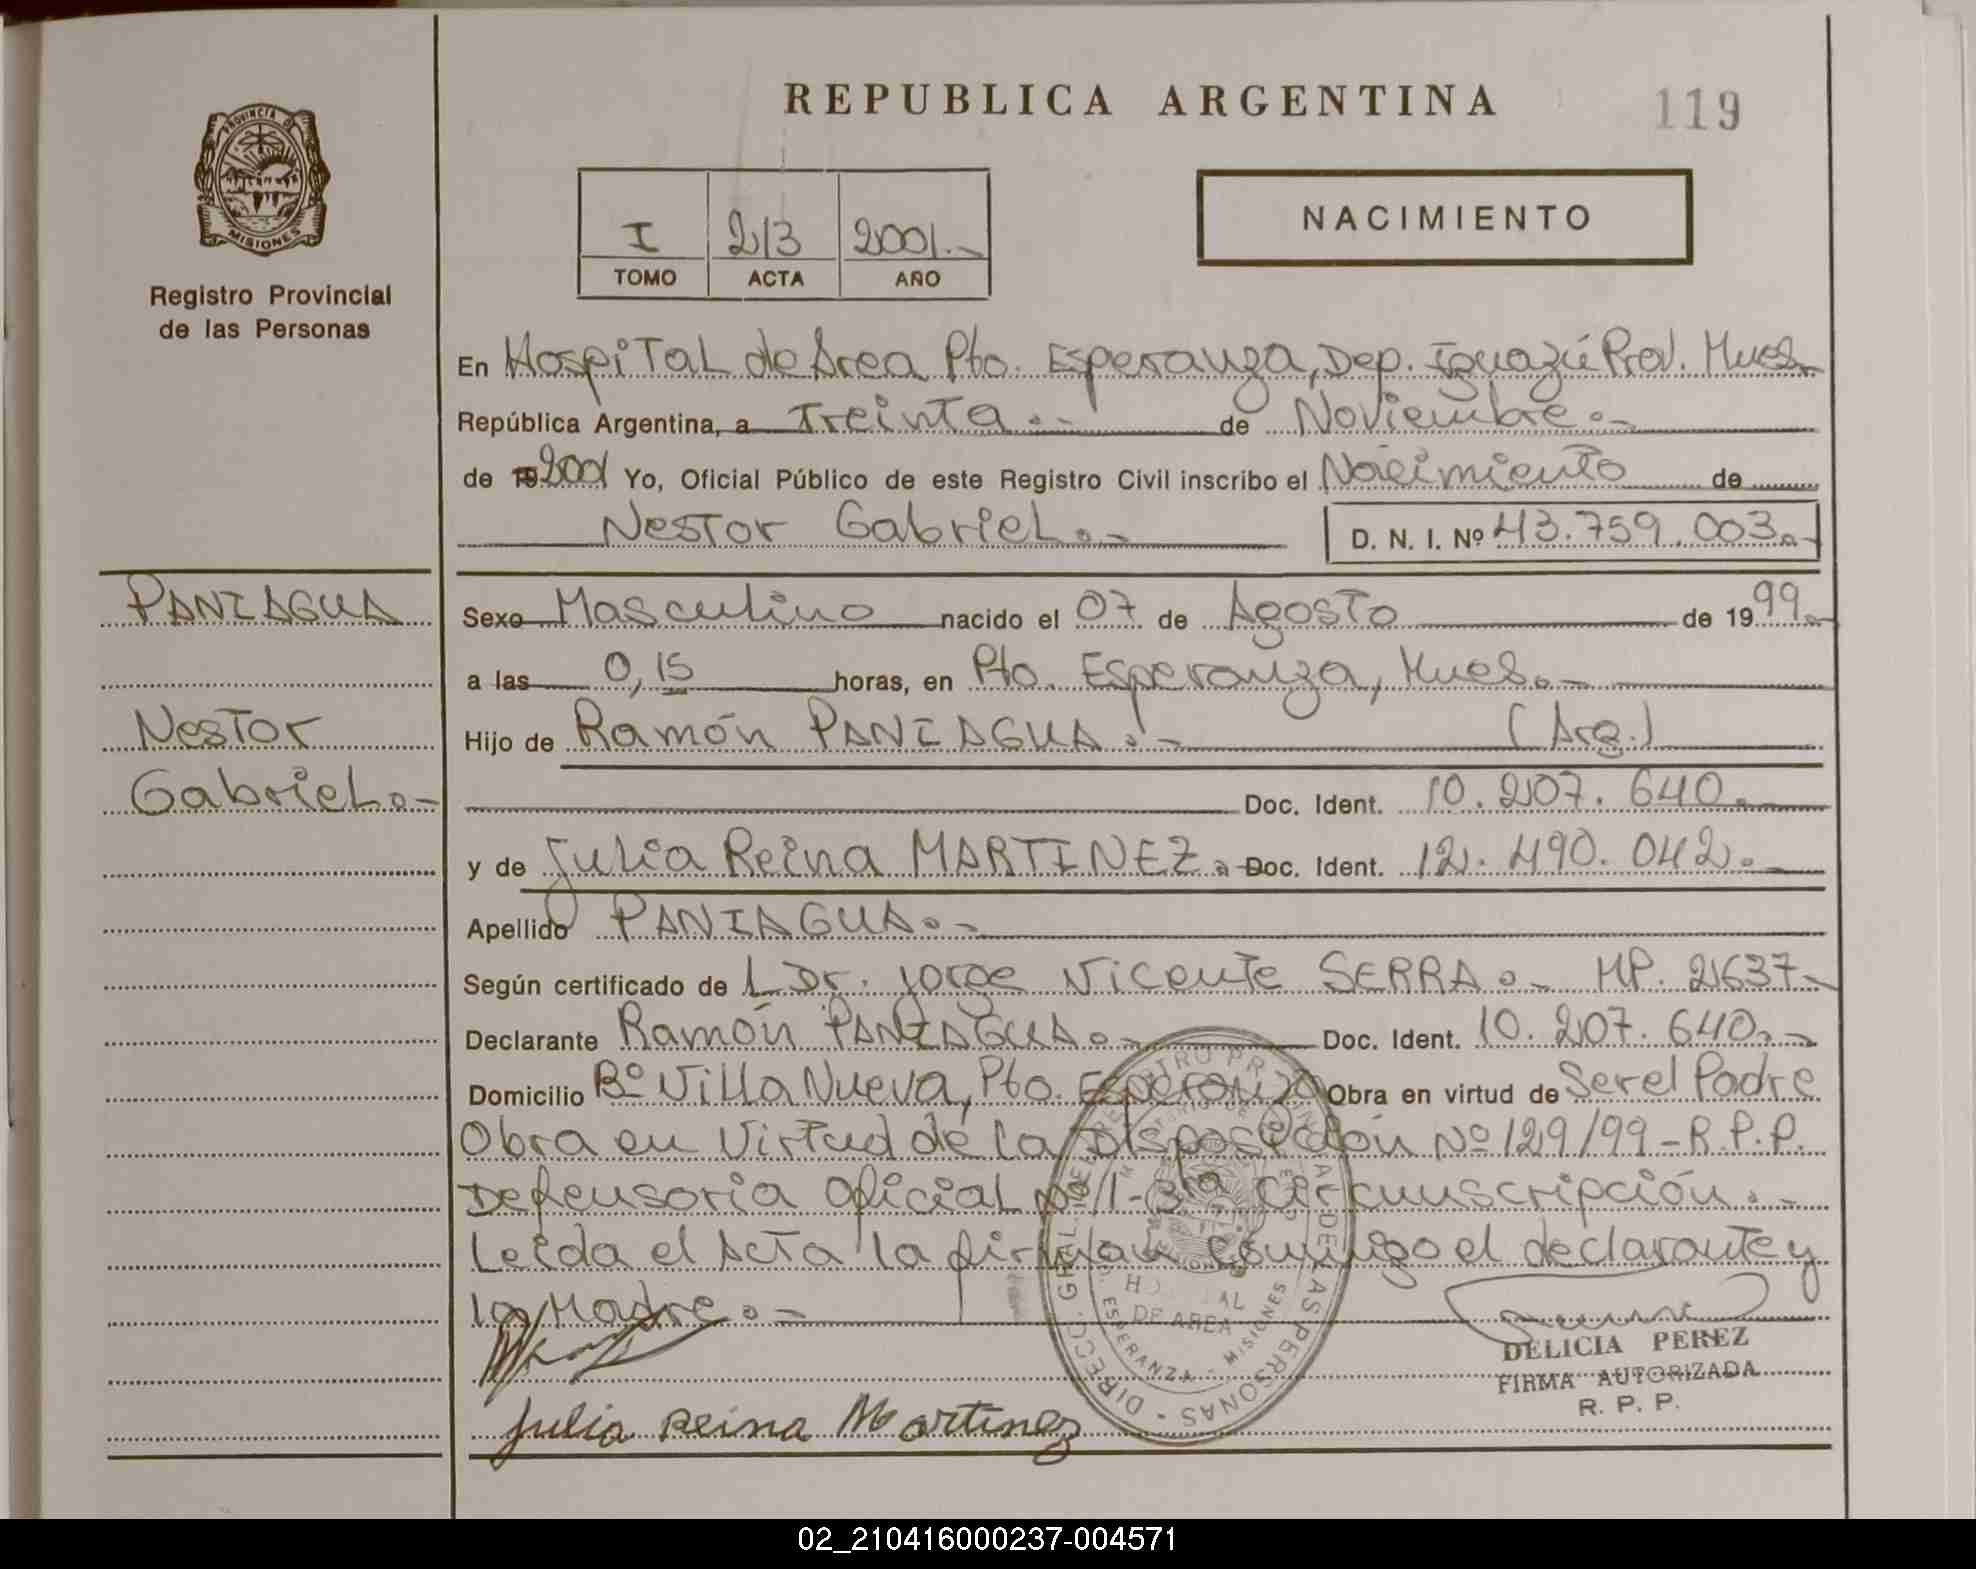 REPUBLICA ARGENTINA
119
PROVINCIA DE
MISIONES
Registro Provincial
de las Personas
I 213 2001.-
TOMO ACTA AÑO
NACIMIENTO
En Hospital de Area Pto. Esperanza, Dep. Iguazú Prov. Mnes.
República Argentina, a Treinta.- de Noviembre.-
de 19 2001 Yo, Oficial Público de este Registro Civil inscribo el Nacimiento de
Nestor Gabriel.- D. N. I. Nº 43.759.003.-
PANIAGUA
Nestor
Gabriel.-
Sexo Masculino nacido el 07 de Agosto de 1999.-
a las 0,15 horas, en Pto. Esperanza, Mnes.-
Hijo de Ramón PANIAGUA.- (Arg.)
Doc. Ident. 10.207.640.-
y de Julia Reina MARTINEZ.- Doc. Ident. 12.490.042.-
Apellido PANIAGUA.-
Según certificado de L Dr. Jorge Vicente SERRA.- MP. 2637-
Declarante Ramón PANIAGUA.- Doc. Ident. 10.207.640.-
Domicilio Bº Villa Nueva, Pto. Esperanza Obra en virtud de Ser el Padre
Obra en Virtud de la Disposición Nº 129/99-R.P.P.
Defensoria Oficial Nº 1-3ra Circunscripción.-
Leida el Acta la firman conmigo el declarante y
la Madre.-
DIRECC. GRAL. DEL REGISTRO PROVINCIAL DE LAS PERSONAS
HOSPITAL
DE AREA
ESPERANZA - MISIONES
DELICIA PEREZ
FIRMA AUTORIZADA
R. P. P.
Julia Reina Martinez
02_210416000237-004571